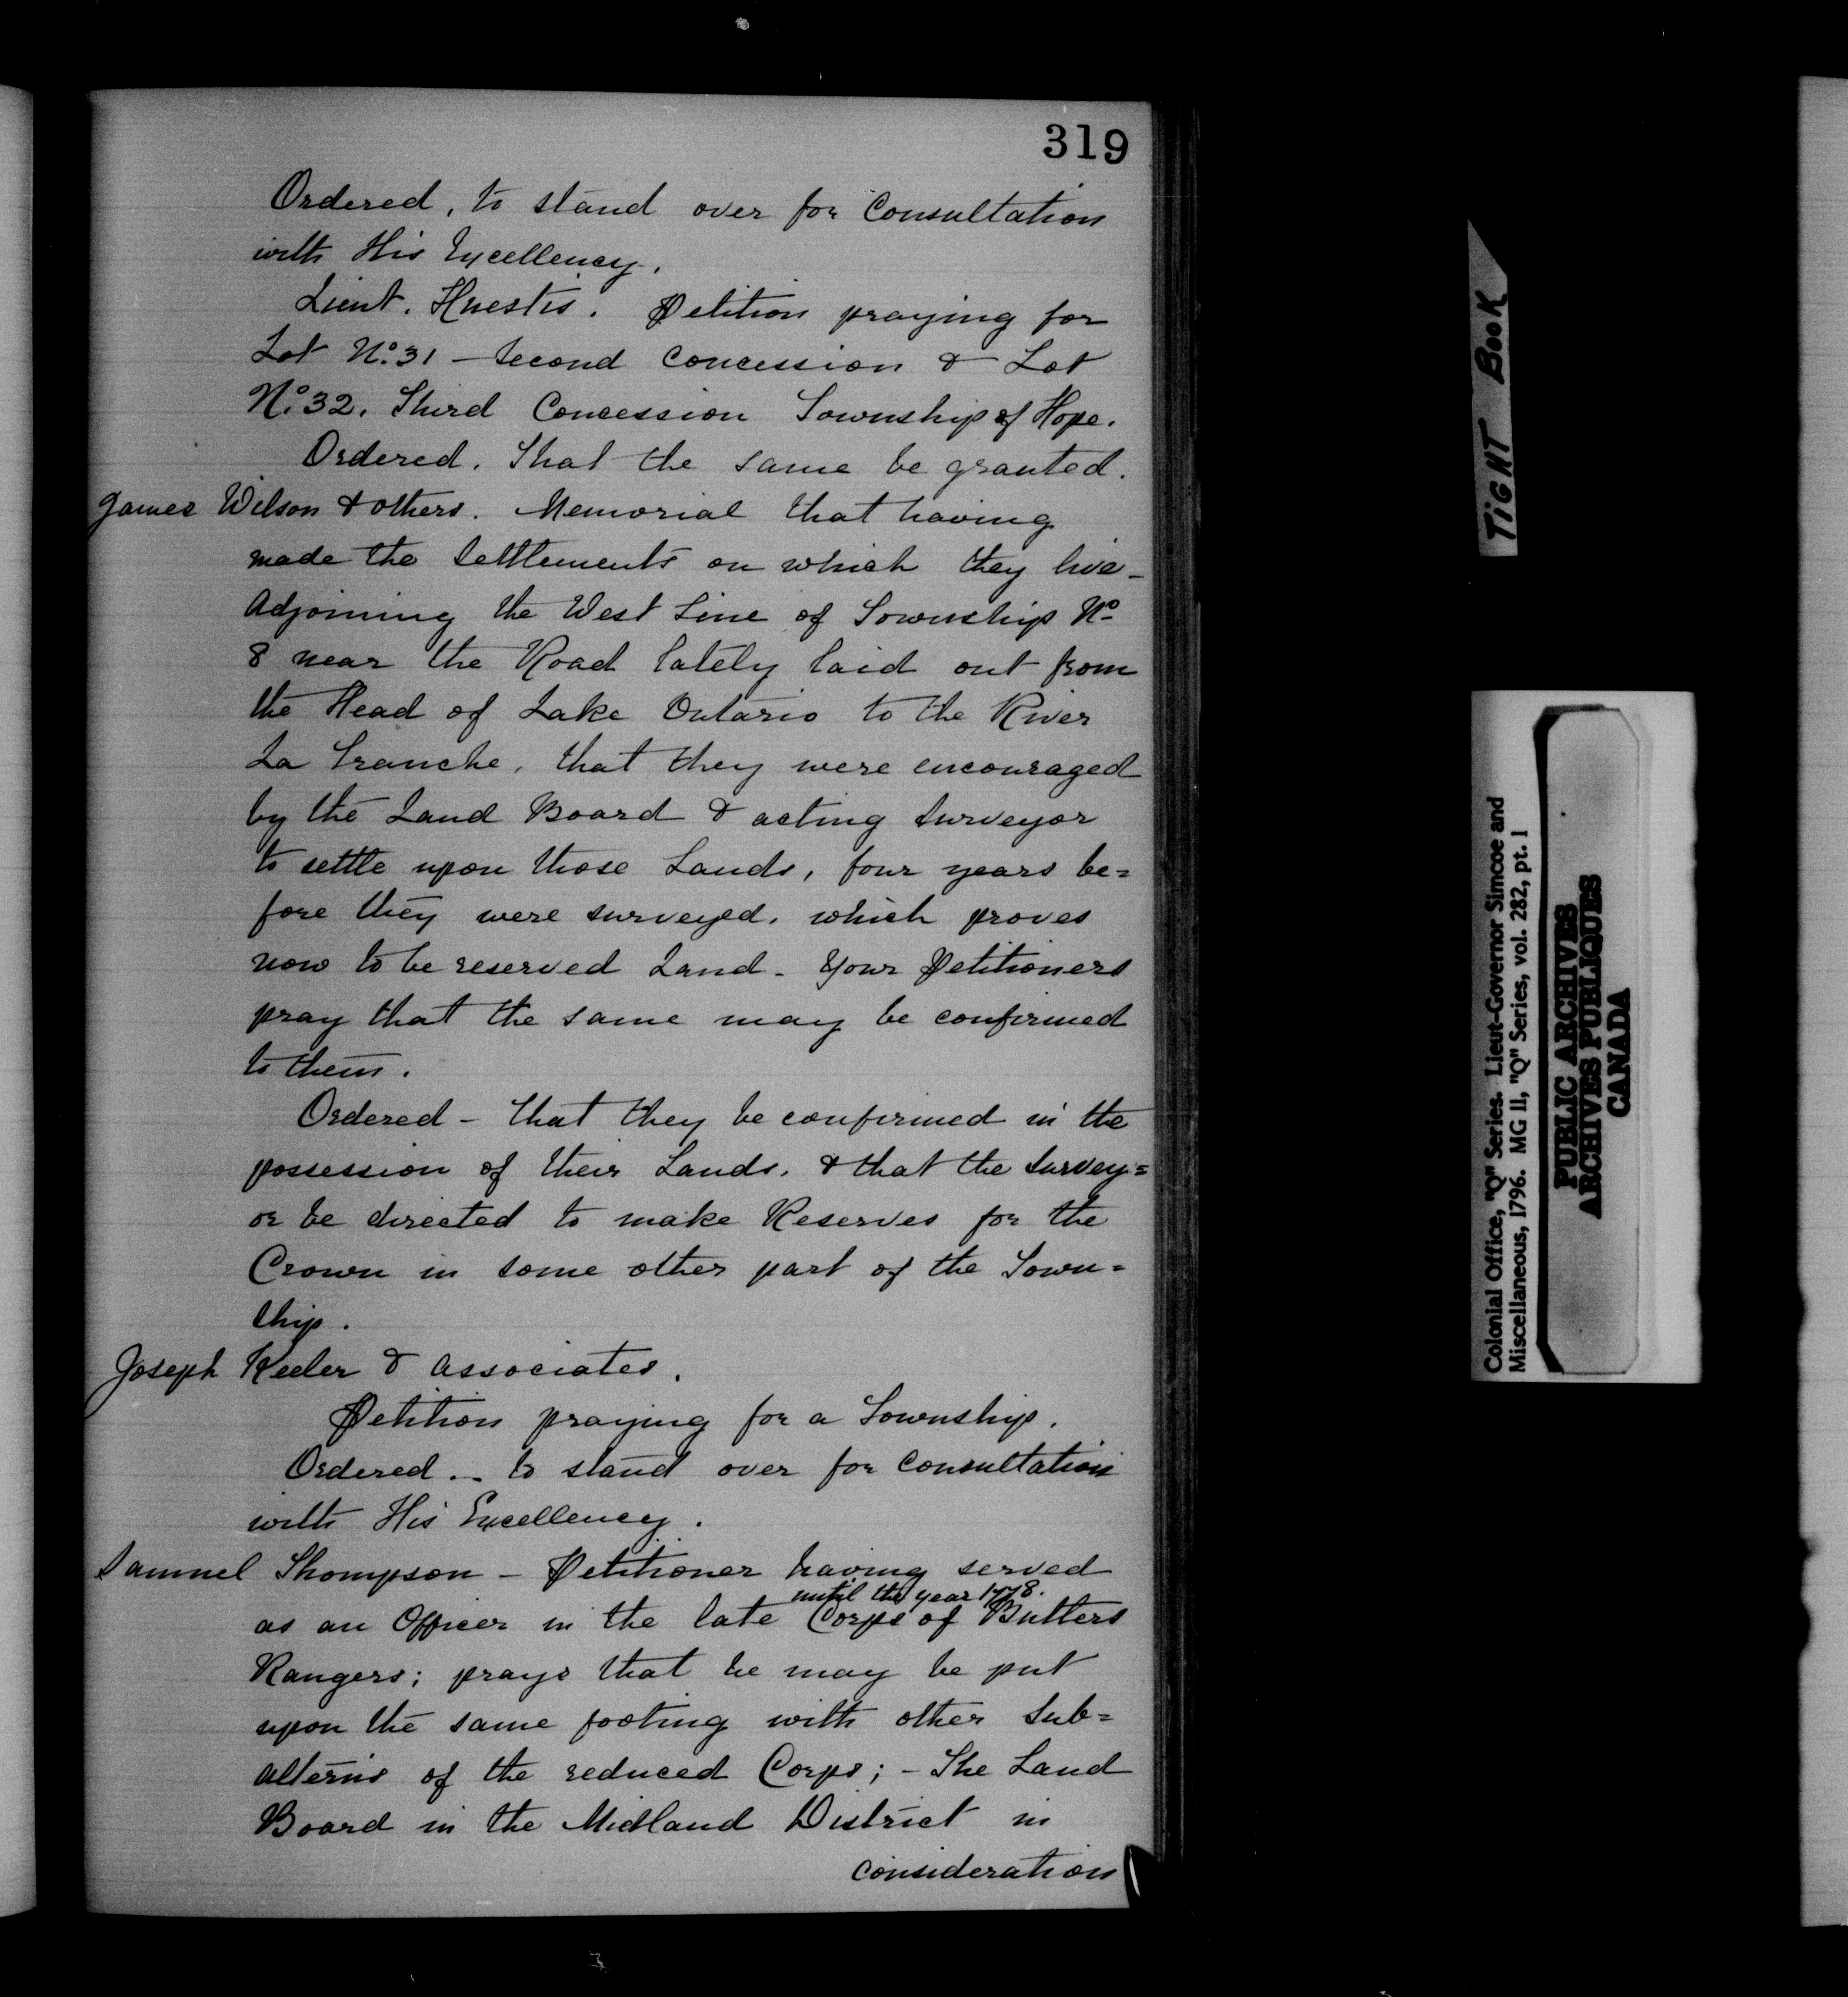 319
Ordered, to stand over for Consultation
with His Excellency.
Lieut. Huestis. Petition praying for
Lot No. 31 – Second Concession & Lot
No. 32. Third Concession Township of Hope.
Ordered. That the same be granted.
James Wilson & others. Memorial that having
made the Settlements on which they live –
Adjoining the West Line of Township No.
8 near the Road lately laid out from
the Head of Lake Ontario to the River
La Tranche, that they were encouraged
by the Land Board & acting Surveyor
to settle upon those Lands, four years be=
fore they were surveyed, which proves
now to be reserved Land – Your Petitioners
pray that the same may be confirmed
to them.
Ordered – that they be confirmed in the
possession of their Lands. & that the Survey=
or be directed to make Reserves for the
Crown in some other part of the Town=
ship.
Joseph Keeler & Associates.
Petition praying for a Township.
Ordered. – to stand over for Consultation
with His Excellency.
Samuel Thompson – Petitioner having served
until the year 1778.
as an Officer in the late Corps of Butlers
Rangers; prays that he may be put
upon the same footing with other Sub=
alterns of the reduced Corps; – The Land
Board in the Midland District in
consideration
TIGHT BOOK
Colonial Office, "Q" Series. Lieut-Governor Simcoe and
Miscellaneous, 1796. MG 11, "Q" Series, vol. 282, pt. 1
PUBLIC ARCHIVES
ARCHIVES PUBLIQUES
CANADA